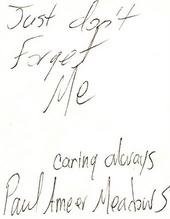 Just don't
Forget
Me
caring always
Paul Ameer Meadows